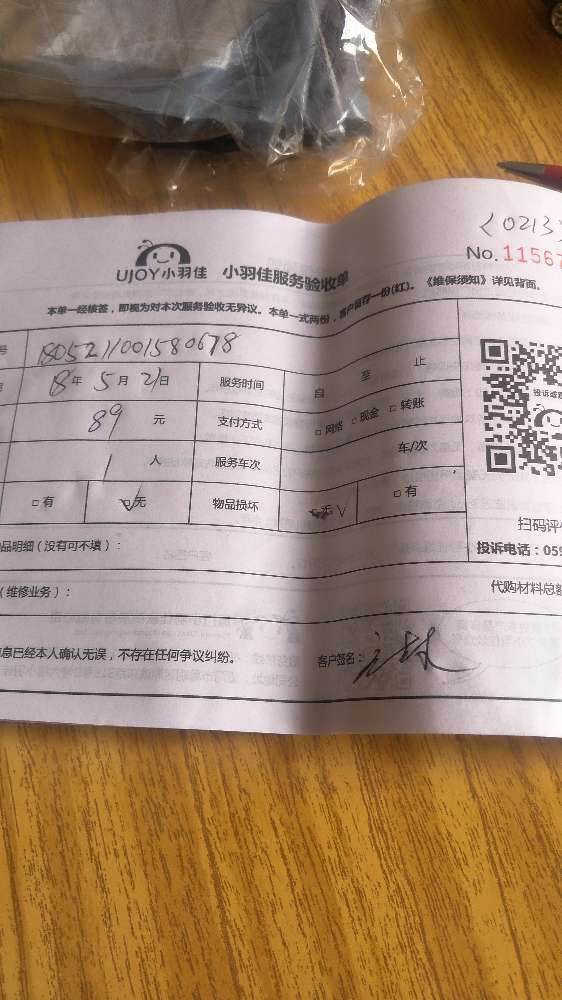 (0213
No.1156
UJOY小羽佳 小羽佳服务验收单
本单一经核签，即视为对本次服务验收无异议。本单一式两份，客户留存一份(红)。《维保须知》详见背面。
号 180521001580678
18年5月21日 服务时间 自 至 止
89 元 支付方式 □网络 □现金 □转账
1 人 服务车次 车/次
□有 √无 物品损坏 □无√ □有
投诉或
扫码评
品明细（没有可不填）： 投诉电话：059
（维修业务）： 代购材料总额
息已经本人确认无误，不存在任何争议纠纷。 客户签名：